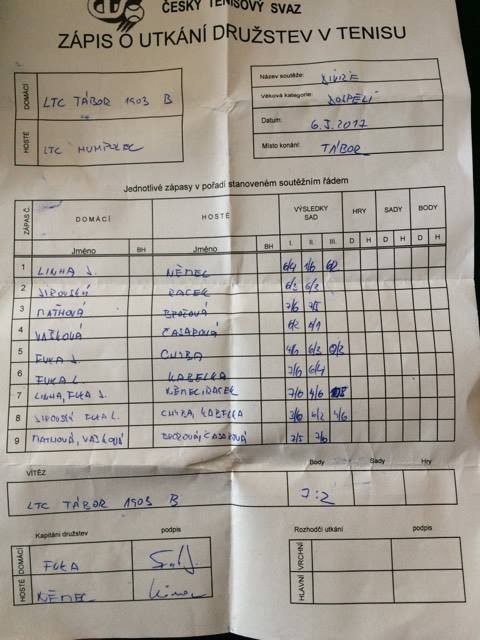 ČESKÝ TENISOVÝ SVAZ
ZÁPIS O UTKÁNÍ DRUŽSTEV V TENISU
DOMÁCÍ LTC TÁBOR 1903 B
HOSTÉ LTC HUMPOLEC
Název soutěže: DIVIZE
Věková kategorie: DOSPĚLÍ
Datum: 6.5.2017
Místo konání: TÁBOR
Jednotlivé zápasy v pořadí stanoveném soutěžním řádem
ZÁPAS Č. DOMÁCÍ HOSTÉ VÝSLEDKY SAD HRY SADY BODY
Jméno BH Jméno BH I. II. III. D H D H D H
1 LINHA J. NĚMEC 6/4 1/6
2 JIROUSKÝ RACEK 6/3 6/2
3 MAŤHOVÁ BROŽOVÁ 7/6 7/5
4 VAŠKOVÁ ČASAROVÁ 6/2 6/1
5 FUKA J. CHYBA 4/6 6/3
6 FUKA L. KABELKA 7/6 6/4
7 LINHA, FUKA J. NĚMEC, RACEK 7/6 4/6
8 JIROUSKÝ FUKA L. CHYBA, KABELKA 3/6 6/2 4/6
9 MAŤHOVÁ, VAŠKOVÁ BROŽOVÁ, ČASAROVÁ 7/5 7/6
VÍTĚZ Body Sady Hry
LTC TÁBOR 1903 B 7:2
Kapitáni družstev podpis
DOMÁCÍ FUKA
HOSTÉ NĚMEC
Rozhodčí utkání podpis
VRCHNÍ
HLAVNÍ